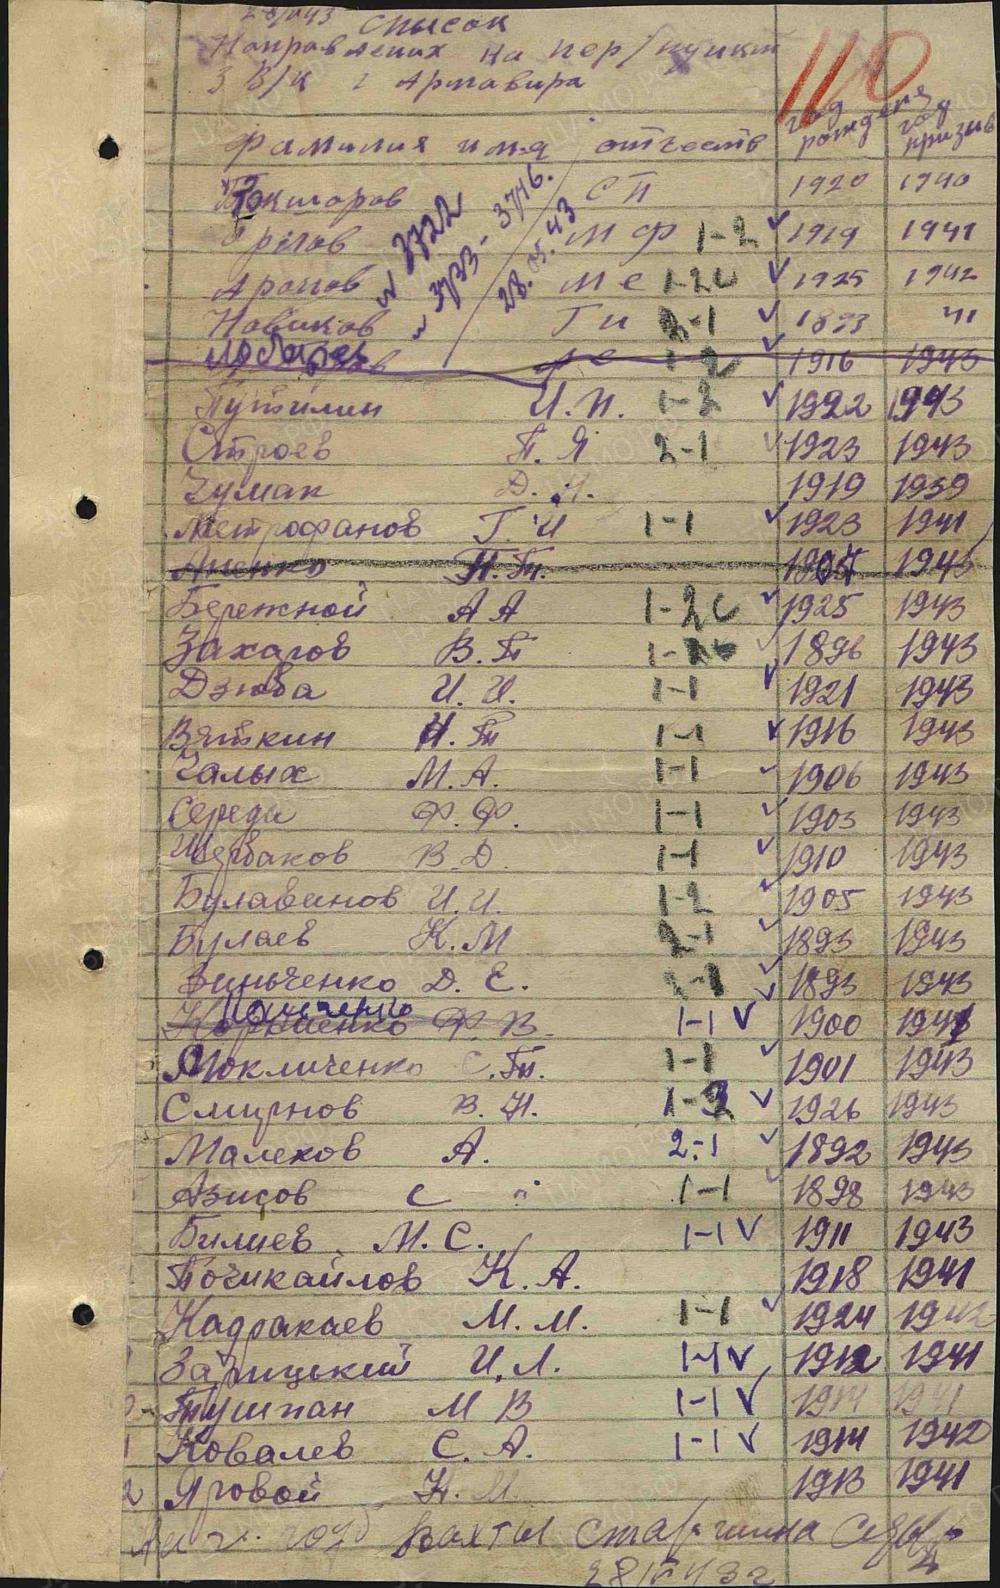 28/V43 список
Направлених на пер/пункт
З В/К г Армавира
110
фамилия имя отчеств год рождения год призыв
№ 3722
№ 3733-3746.
28.05.43
СП 1920 1940
МФ 1-2 1919 1941
Аропов МС 1-2с 1925 1942
Новиков ГИ 2-1 1893 41
1-2 1916 1943
Путилин И.П. 1-2 1922 1943
Строев П.Я 2-1 1923 1943
Чумак Д.И. 1919 1939
Метрофанов Г.И 1-1 1923 1941
П.П. 1943
Бережной АА 1-2с 1925 1943
Захаров В.П 1896 1943
Дзюба И.И. 1-1 1921 1943
Вяткин И.П 1-1 1916 1943
Чалых М.А. 1-1 1906 1943
Середа Ф.Ф. 1-1 1903 1943
Щербаков В.Д. 1-1 1910 1943
Булавинов И.И. 1-2 1905 1943
Булаев К.М 2-1 1893 1943
Зиньченко Д.Е. 1893 1943
Ф.В. 1-1 1900 1941
Мокличенко С.П. 1-1 1901 1943
Смирнов В.Н. 1-3 1926 1943
Малеков А. 2-1 1892 1943
Азисов С " 1-1 1898 1943
Билиев М.С. 1-1 1911 1943
Почикайлов К.А. 1918 1941
Кадракаев М.М. 1-1 1924 1942
Зарицький И.Л. 1-1 1912 1941
Тушпан М В 1-1 1914 1941
1 Ковалев С.А. 1-1 1914 1942
2 Яровой Н.М 1913 1941
вахты старшина
28/V 43г